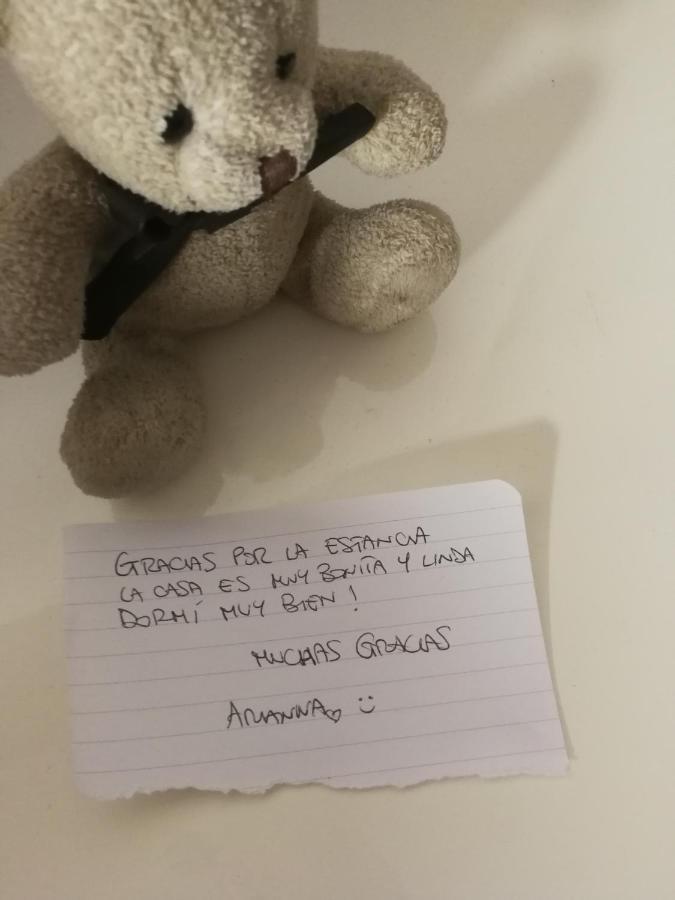 GRACIAS POR LA ESTANCIA
LA CASA ES MUY BONITA Y LINDA
DORMÍ MUY BIEN!
MUCHAS GRACIAS
ARIANNA♡ :)